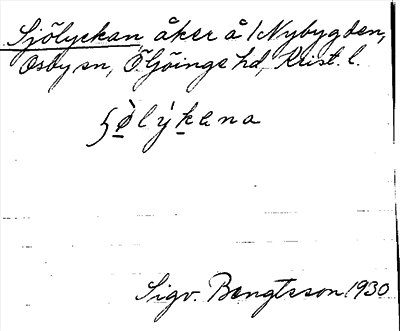 Sjölyckan åker å 1 Nybygden,
Osby sn, Ö. Göinge hd, Krist. l.
ʂø̀lýkena
Sigv. Bengtsson 1930